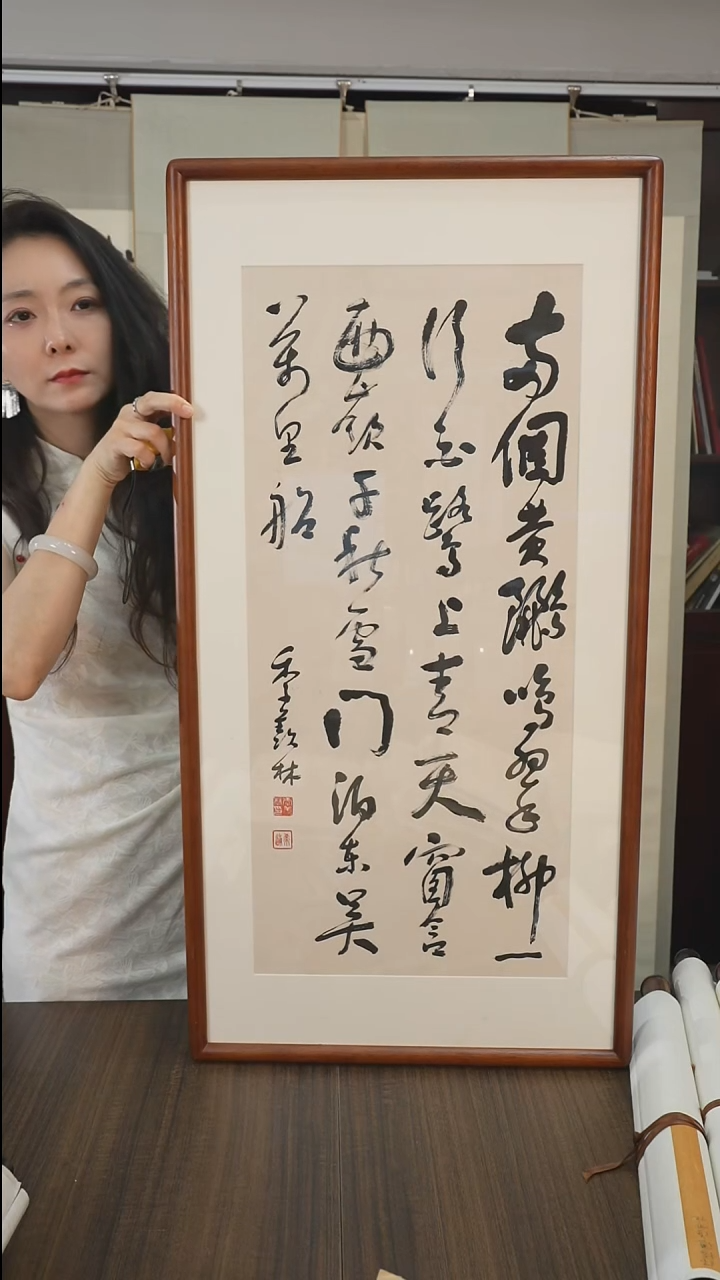 兩個黄鸝鳴翠柳一
行白鷺上青天窗含
西嶺千秋雪門泊東吳
萬里船
季羨林